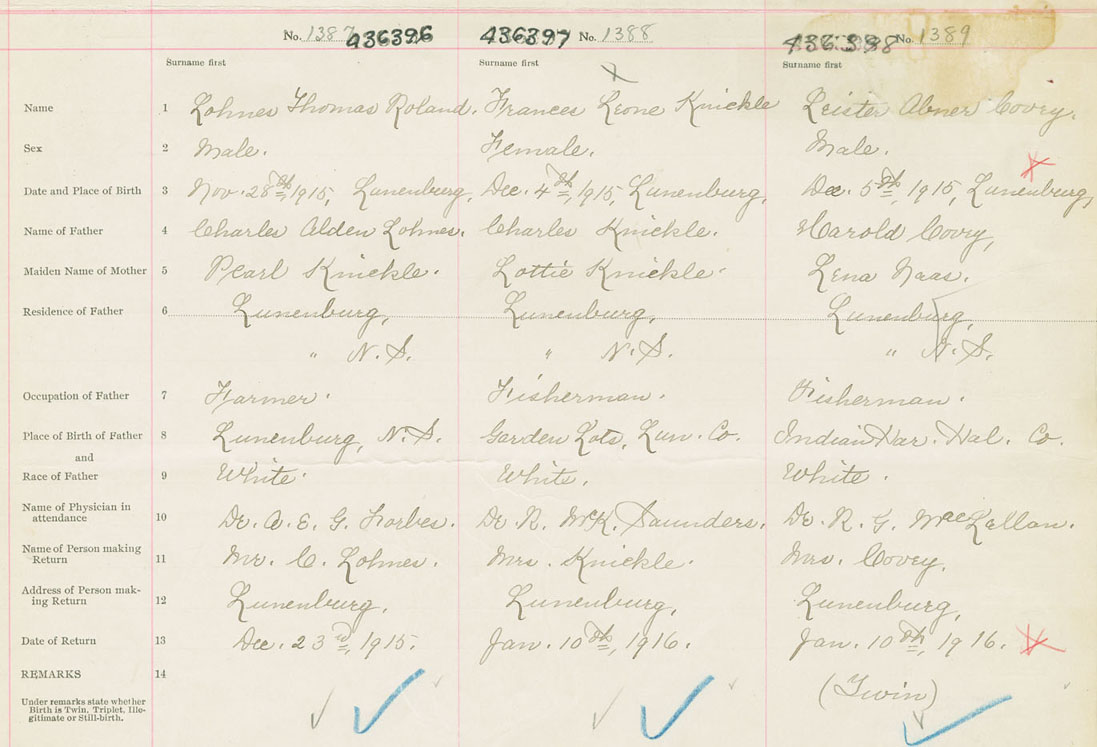 No. 1387 436396 436397 No. 1388 436398 No. 1389
Surname first Surname first Surname first
Name 1 Lohnes Thomas Roland. Frances Leone Knickle Leister Abner Covey.
Sex 2 Male. Female. Male.
Date and Place of Birth 3 Nov. 28th, 1915, Lunenburg, Dec. 4th, 1915, Lunenburg, Dec. 5th, 1915, Lunenburg,
Name of Father 4 Charles Alden Lohnes. Charles Knickle. Harold Covey,
Maiden Name of Mother 5 Pearl Knickle. Lottie Knickle. Lena Naas.
Residence of Father 6 Lunenburg, Lunenburg, Lunenburg,
" N.S. " N.S. " N.S.
Occupation of Father 7 Farmer. Fisherman. Fisherman.
Place of Birth of Father 8 Lunenburg, N.S. Garden Lots, Lun. Co. Indian Har. Hal. Co.
and
Race of Father 9 White. White. White.
Name of Physician in
attendance 10 Dr. A. E. G. Forbes. Dr. R. McK. Saunders. Dr. R. G. MacLellan.
Name of Person making
Return 11 Mr. C. Lohnes. Mrs. Knickle. Mrs. Covey,
Address of Person mak-
ing Return 12 Lunenburg, Lunenburg, Lunenburg,
Date of Return 13 Dec. 23rd, 1915. Jan. 10th, 1916. Jan. 10th, 1916.
REMARKS 14 (Twin)
Under remarks state whether
Birth is Twin, Triplet, Ille-
gitimate or Still-birth.